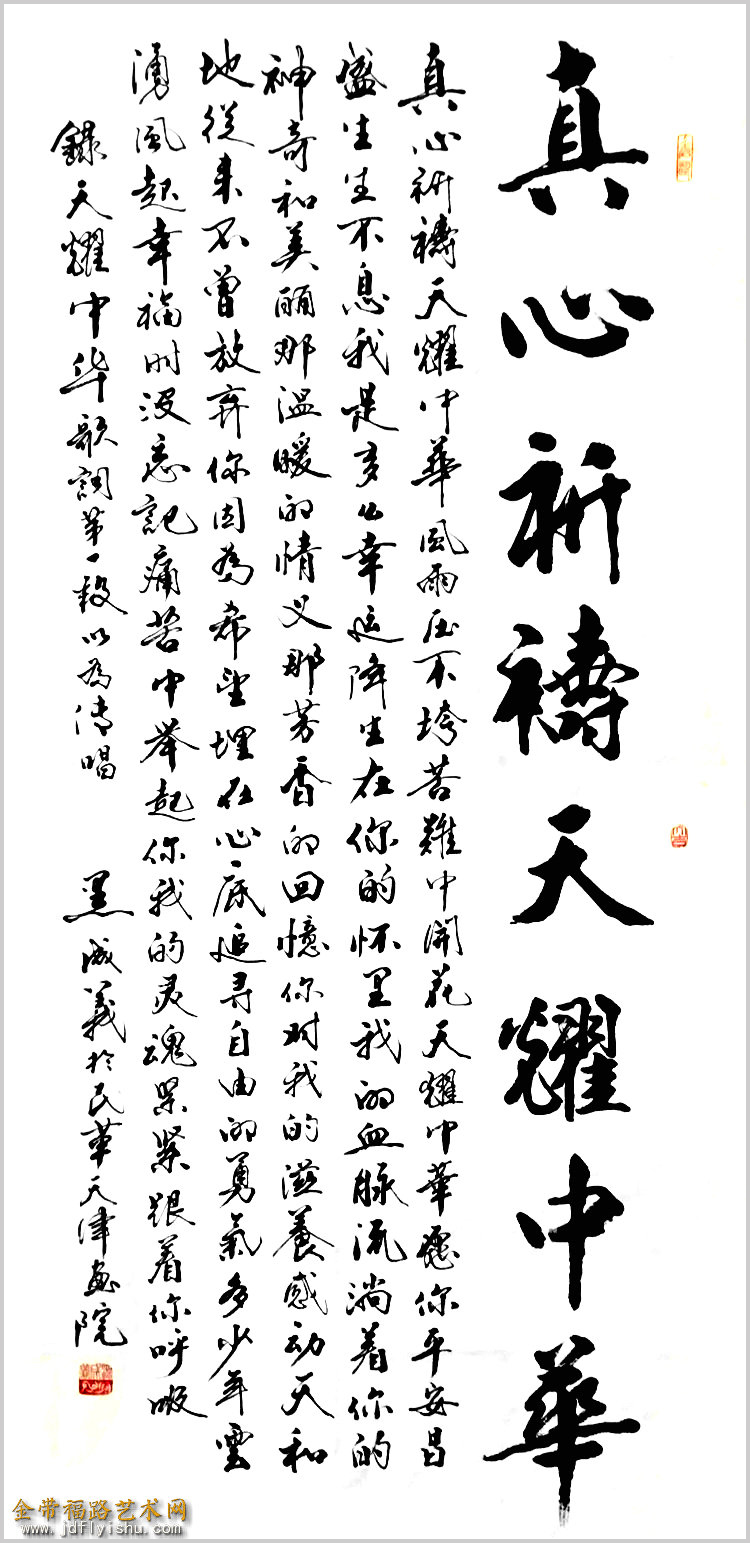 真心祈禱天耀中華
真心祈禱天耀中華風雨压不垮苦難中開花天耀中華愿你平安昌
盛生生不息我是多么幸运降生在你的怀里我的血脉流淌着你的
神奇和美丽那温暖的情义那芳香的回憶你对我的滋養感动天和
地從来不曾放弃你因為希望埋在心底追寻自由的勇氣多少年雲
湧風起幸福时没忘記痛苦中举起你我的灵魂紧紧跟着你呼吸
録天耀中华歌詞第一段以為传唱
黑成義於民革天津画院
金带福路艺术网
www.jdflyishu.com